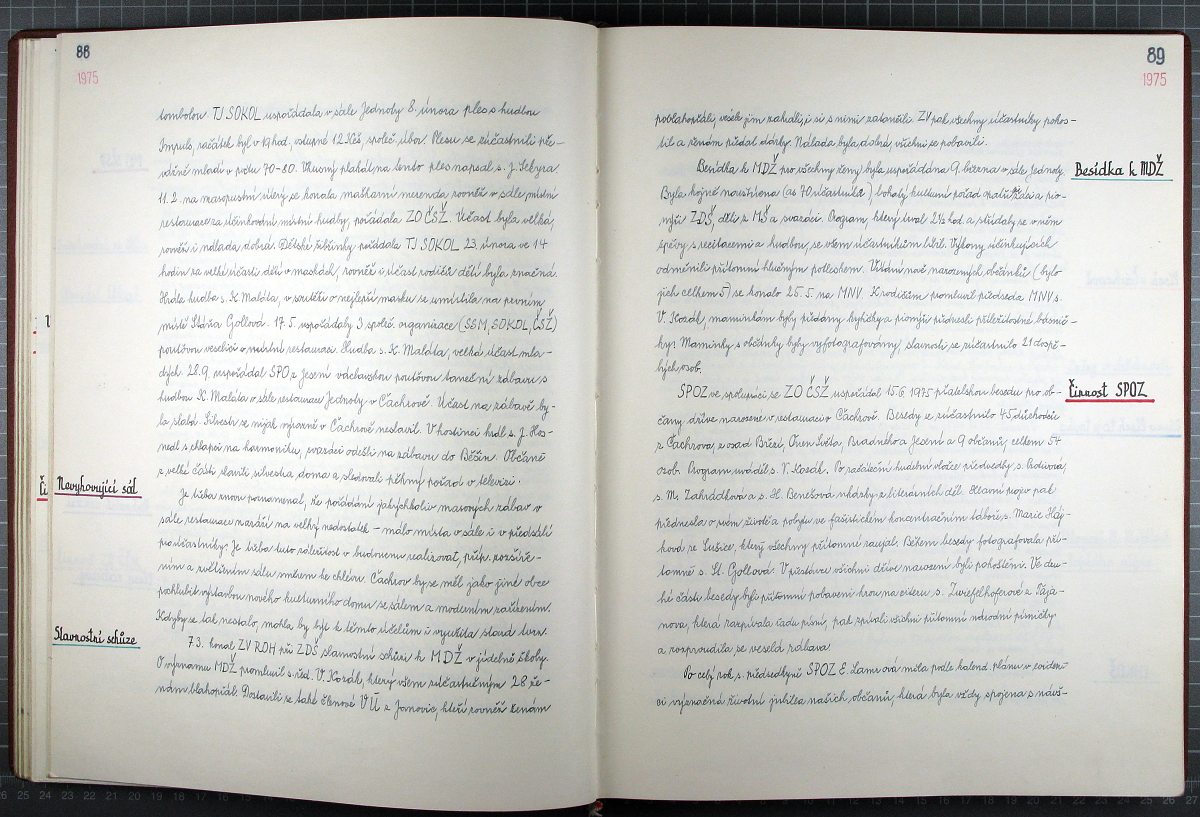 88
1975
tombolou. TJ SOKOL uspořádala v sále Jednoty 8. února ples s hudbou
Impuls, začátek byl v 19 hod, vstupné 12 Kčs, společ. úbor. Plesu se zúčastnili pře-
vážně mladí v počtu 70-80. Vkusný plakát na tento ples napsal s. J. Sekyra
11.2. na masopustní úterý se konala maškarní merenda rovněž v sále místní
restaurace za účinkování místní hudby, pořádala ZO ČSŽ. Účast byla velká,
rovněž i nálada dobrá. Dětské šibřinky pořádala TJ SOKOL 23. února ve 14
hodin za velké účasti dětí v maskách, rovněž i účast rodičů dětí byla značná.
Hrála hudba s. K. Maláta, v soutěži o nejlepší masku se umístila na prvním
místě Stáňa Gollová. 17.5. uspořádaly 3 společ. organizace (SSM, SOKOL, ČSŽ)
pouťovou veselici v místní restauraci. Hudba s. K. Maláta, velká účast mla-
dých. 28.9. uspořádal SPO z Jesení václavskou pouťovou taneční zábavu s
hudbou K. Maláta v sále restaurace Jednoty v Čachrově. Účast na zábavě by-
la slabá. Silvestr se nijak výrazně v Čachrově neslavil. V hostinci hrál s. J. Hos-
nedl s chlapci na harmoniku, svazáci odešli na zábavu do Běšin. Občané
z velké části slavili silvestra doma a sledovali pěkný pořad v televizi.
Nevyhovující sál
Je třeba znovu poznamenat, že pořádání jakýchkoliv masových zábav v
sále restaurace naráží na velký nedostatek - málo místa v sále i v předsálí
pro účastníky. Je třeba tuto záležitost v budoucnu realizovat, příp. rozšíře-
ním a zvětšením sálu směrem ke chlévu. Čachrov by se měl jako jiné obce
pochlubit výstavbou nového kulturního domu se sálem a moderním zařízením.
Kdyby se tak nestalo, mohla by být k těmto účelům i využita stará tvrz.
Slavnostní schůze
7.3. konal ZV ROH při ZDŠ slavnostní schůzi k MDŽ v jídelně školy.
O významu MDŽ promluvil s. řed. V. Kozák, který všem zúčastněným 28 že-
nám blahopřál. Dostavili se také členové VÚ z Janovic, kteří rovněž ženám
89
1975
poblahopřáli, vesele jim zahráli, i si s nimi zatančili. ZV pak všechny účastníky pohos-
til a ženám předal dárky. Nálada byla dobrá, všichni se pobavili.
Besídka k MDŽ
Besídka k MDŽ pro všechny ženy byla uspořádána 9. března v sále Jednoty.
Byla hojně navštívena (as 70 účastníků), bohatý kulturní pořad
ZDŠ, děti z MŠ a svazáci. Program, který trval 2½ hod. a střídaly se v něm
zpěvy s recitacemi a hudbou, se všem účastníkům líbil. Výkony účinkujících
odměnili přítomní hlučným potleskem. Vítání nově narozených občánků (bylo
jich celkem 5) se konalo 25.5. na MNV. K rodičům promluvil předseda MNV s.
V. Kozák, maminkám byly předány kytičky a pionýři přednesli příležitostné básnič-
ky. Maminky s občánky byly vyfotografovány, slavnosti se zúčastnilo 21 dospě-
lých osob.
Činnost SPOZ
SPOZ ve spolupráci se ZO ČSŽ uspořádal 15.6.1975 přátelskou besedu pro ob-
čany dříve narozené v restauraci v Čachrově. Besedy se zúčastnilo 45 důchodců
z Čachrova, z osad Březí, Chřen Světa, Bradného a Jesení a 9 občanů, celkem 54
osob. Program uváděl s. V. Kozák. Po začáteční hudební vložce předvedly s.
s. M. Zahrádková a s. H. Benešová ukázky z literárních děl. Hlavní projev pak
přednesla o svém životě a pobytu ve fašistickém koncentračním táboře s. Marie Háj-
ková ze Sušice, který všechny přítomné zaujal. Během besedy fotografovala pří-
tomné s. St. Gollová. V přestávce všichni dříve narození byli pohoštěni. Ve dru-
hé části besedy byli přítomní pobaveni hrou na citeru s. Zwiefelhoferové z Tája-
nova, která zazpívala řadu písní, pak zpívali všichni přítomní národní písničky
a rozproudila se veselá zábava.
Po celý rok s. předsedkyně SPOZ E. Lamrová měla podle kalend. plánu v eviden-
ci význačná životní jubilea našich občanů, která byla vždy spojena s návš-